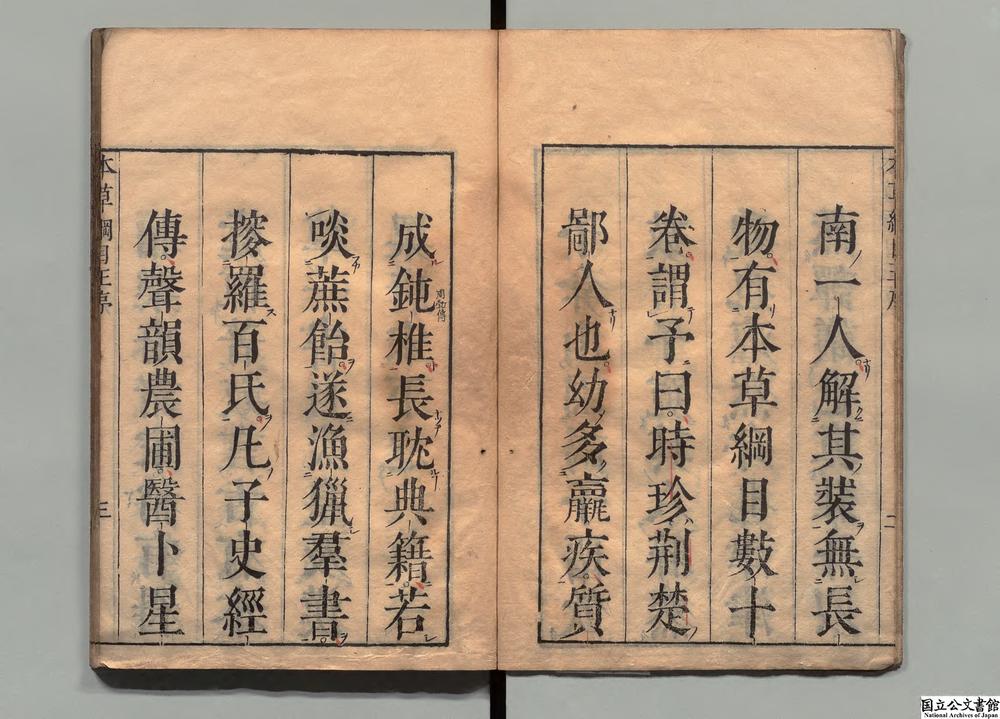 本草綱目王序 二
南一人解其裝無長
物有本草綱目數十
卷謂予曰時珍荆楚
鄙人也幼多羸疾質
成鈍椎長耽典籍若
周勃傳
啖蔗飴遂漁獵羣書
搜羅百氏凡子史經
傳聲韻農圃醫卜星
本草綱目王序 三
国立公文書館
National Archives of Japan